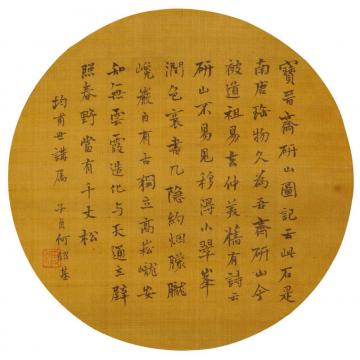 寶晉齋研山圖記云此石是
南唐物久為吾齋研山今
被道祖易去仲美舊有詩云
研山不易見移得小翠峯
潤色裛書几隱約烟朦朧
巉巖自有古獨立高崧巃安
知無雲霞造化与天通立壁
照春野當有千丈松
均甫世講屬 子貞何紹基